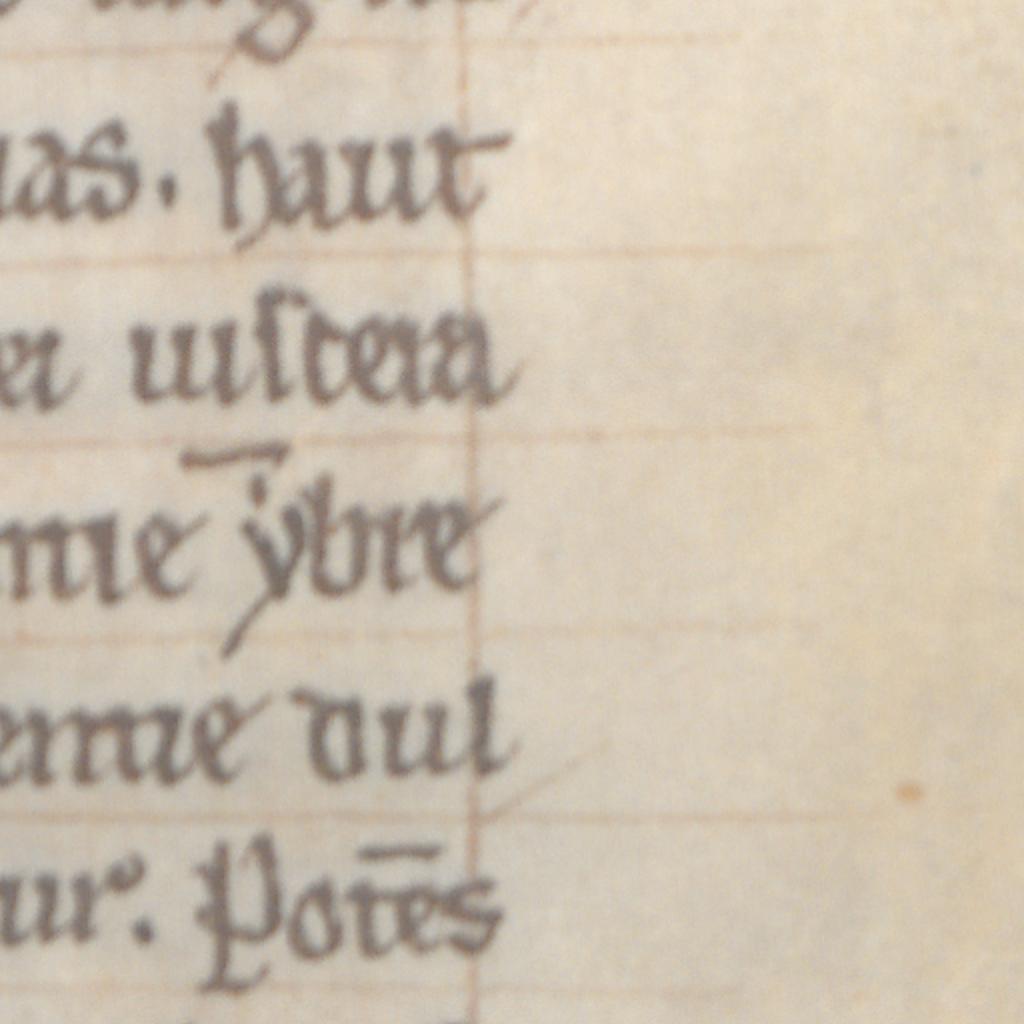 uas. haut
ei uiscera
mie ẏbre
emie dul
ur. Potēs